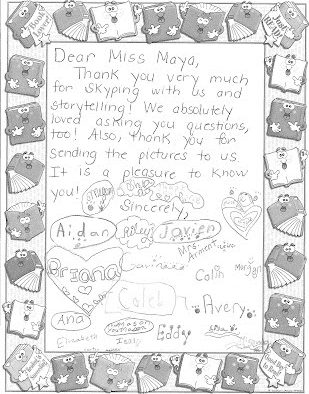 Dear Miss Maya,
Thank you very much
for skyping with us and
storytelling! We absolutely
loved asking you questions,
too! Also, thank you for
sending the pictures to us.
It is a pleasure to know
you!
Sincerely,
Aidan Riley Javien
Mrs.
Briana
Colin Morgan
Caleb
Avery
Ana
Elizabeth
Eddy